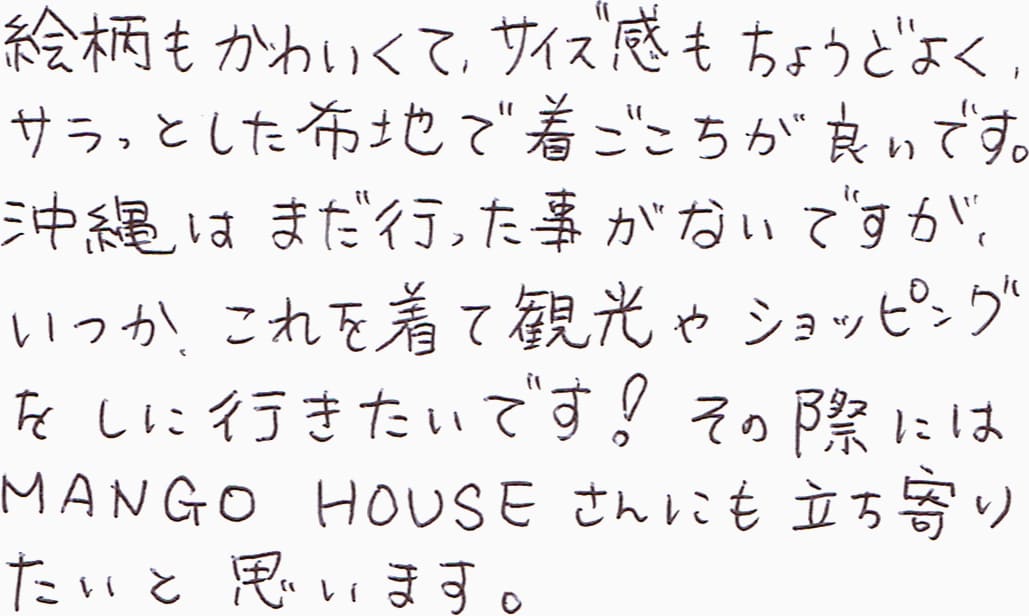 絵柄もかわいくて、サイズ感もちょうどよく、
サラっとした布地で着ごこちが良いです。
沖縄はまだ行った事がないですが、
いつか、これを着て観光やショッピング
をしに行きたいです!その際には
MANGO HOUSEさんにも立ち寄り
たいと思います。